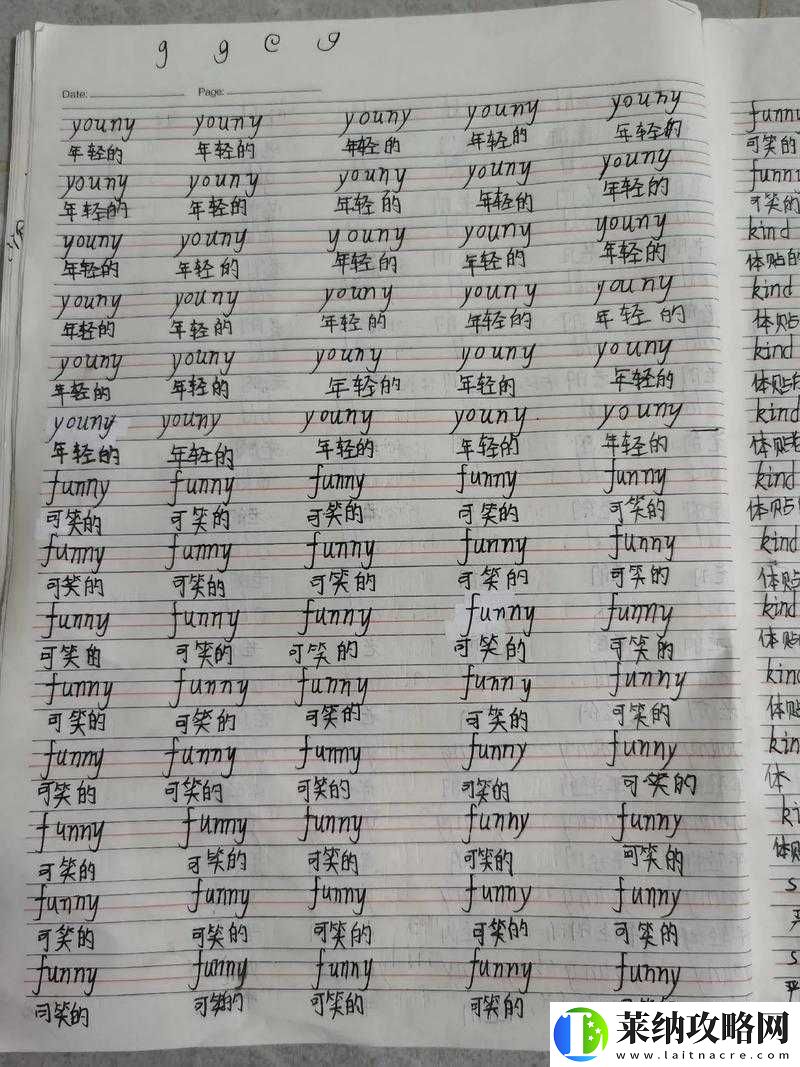 g g e g
Date: Page:
youny youny youny youny youny
年轻的 年轻的 年轻的 年轻的 年轻的
youny youny youny youny youny
年轻的 年轻的 年轻的 年轻的 年轻的
youny youny youny youny youny
年轻的 年轻的 年轻的 年轻的 年轻的
youny youny youny youny youny
年轻的 年轻的 年轻的 年轻的 年轻的
youny youny youny youny youny
年轻的 年轻的 年轻的 年轻的 年轻的
youny youny youny youny youny
年轻的 年轻的 年轻的 年轻的 年轻的
funny funny funny funny funny
可笑的 可笑的 可笑的 可笑的 可笑的
funny funny funny funny funny
可笑的 可笑的 可笑的 可笑的 可笑的
funny funny funny funny funny
可笑的 可笑的 可笑的 可笑的 可笑的
funny funny funny funny funny
可笑的 可笑的 可笑的 可笑的 可笑的
funny funny funny funny funny
可笑的 可笑的 可笑的 可笑的 可笑的
funny funny funny funny funny
可笑的 可笑的 可笑的 可笑的 可笑的
funny funny funny funny funny
可笑的 可笑的 可笑的 可笑的 可笑的
funny funny funny funny funny
可笑的 可笑的 可笑的 可笑的
funny
可笑的
funny
可笑的
kind
体贴的
kind
体贴
kind
体贴的
kind
体贴
kind
体贴
kind
体贴
kind
体贴
kind
体贴
kin
体
ki
体贴
s
严
s
严
莱纳攻略网
www.laitnacre.com